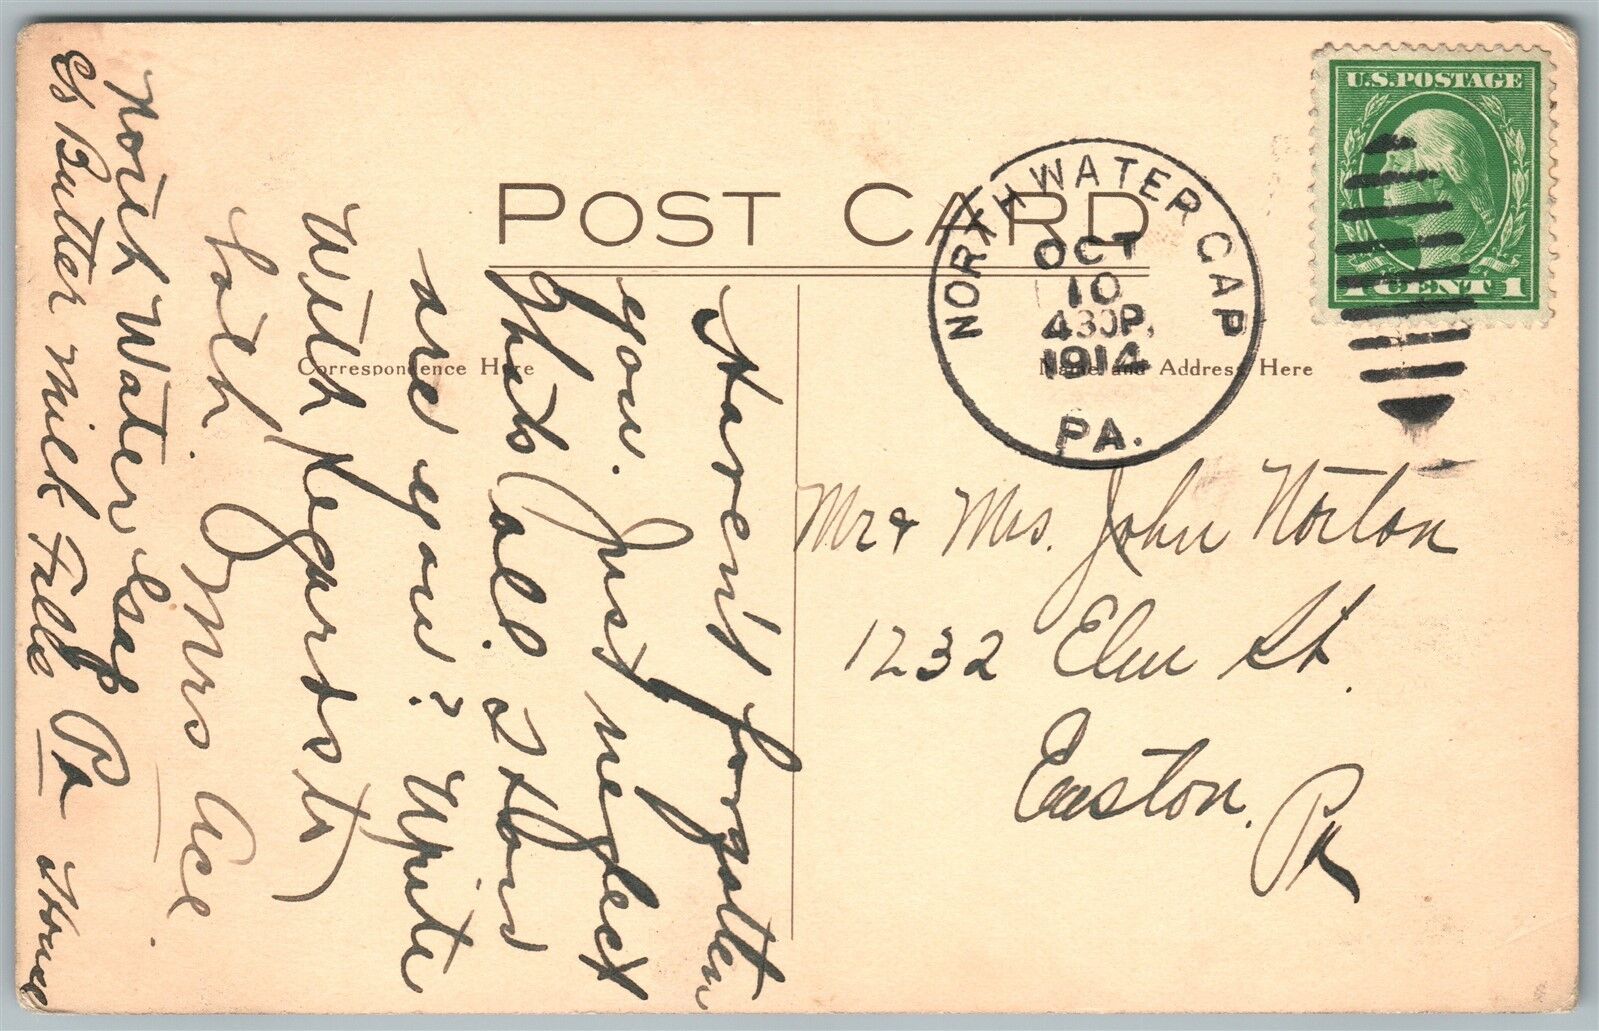 POST CARD
Correspondence Here
Name and Address Here
U.S.POSTAGE
1 CENT 1
NORTH WATER GAP
OCT
10
430P.
1914
PA.
Mr & Mrs. John Norton
1232 Elm St.
Easton, Pa
Haven't forgotten
you. Just neglect
thats all. How
are you? Write
With Regards to
both. Mrs Ace.
North Water Gap Pa
Butter Milk Falls House